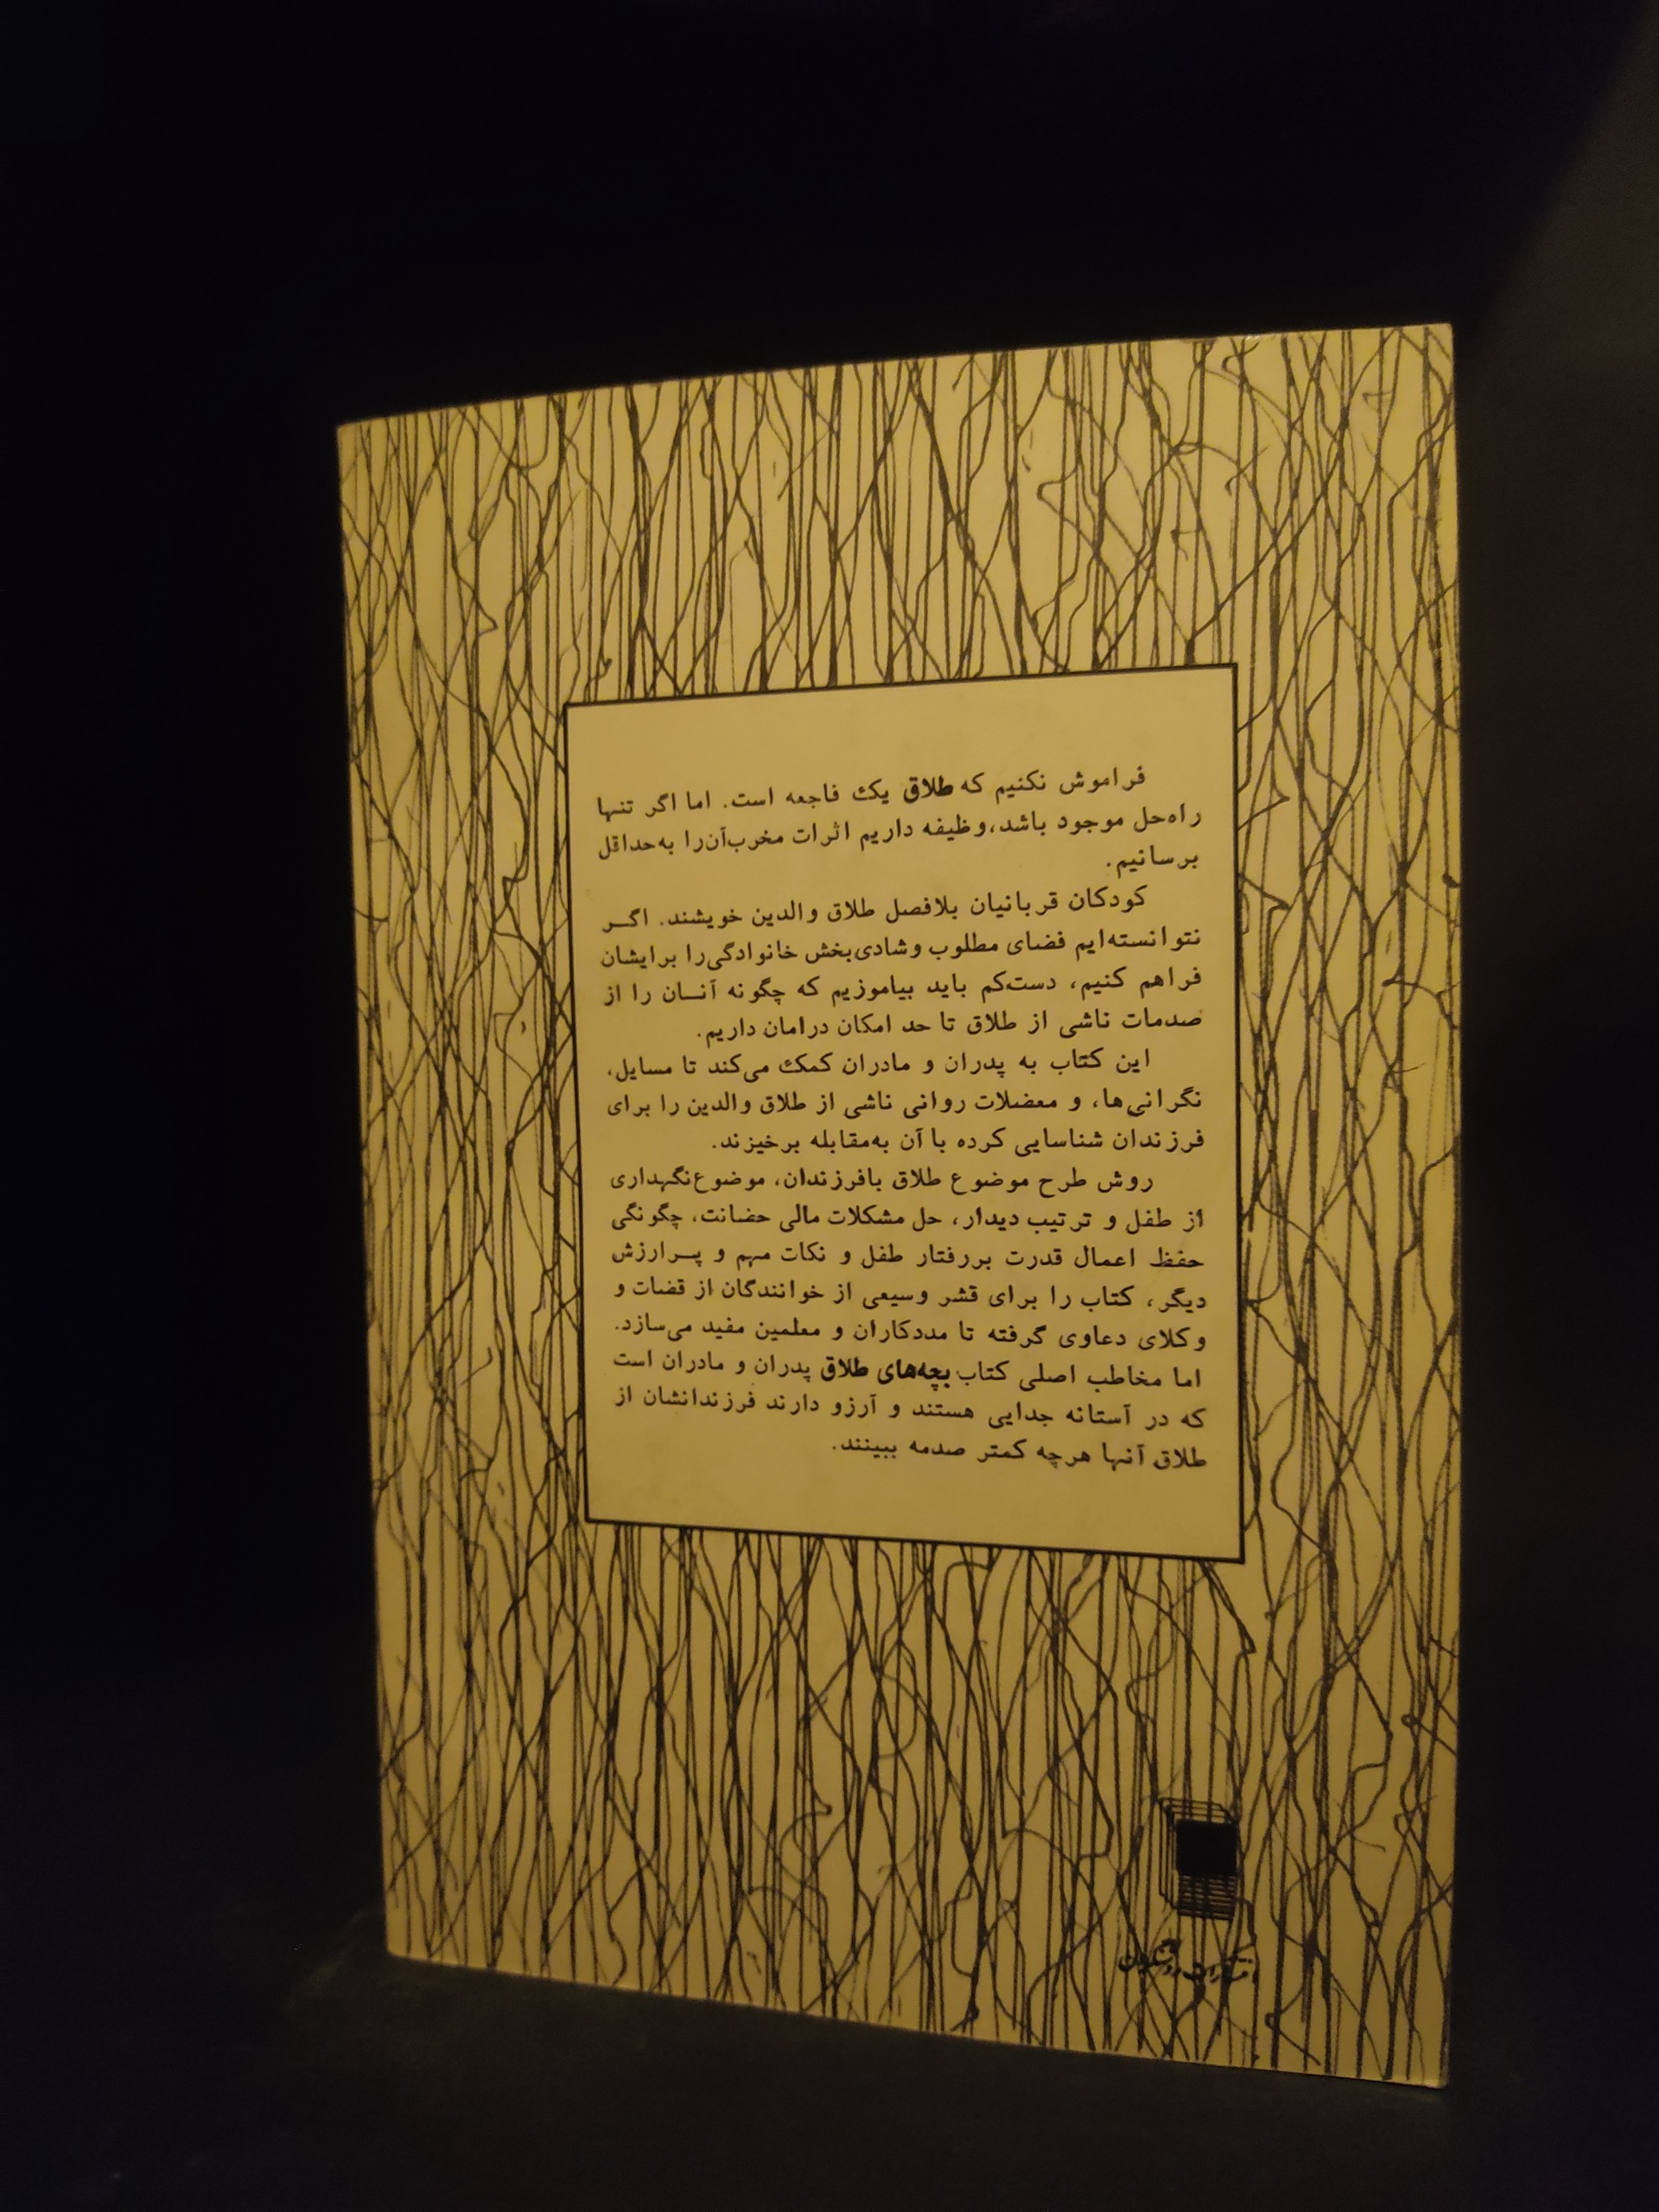 فراموش نکنیم که طلاق یک فاجعه است. اما اگر تنها
راه‌حل موجود باشد، وظیفه داریم اثرات مخرب‌آن‌را به‌حداقل
برسانیم.
کودکان قربانیان بلافصل طلاق والدین خویشند. اگـر
نتوانسته‌ایم فضای مطلوب وشادی‌بخش خانوادگی‌را برایشان
فراهم کنیم، دست‌کم باید بیاموزیم که چگونه آنـان را از
صدمات ناشی از طلاق تا حد امکان درامان داریم.
این کتاب به پدران و مادران کمک می‌کند تا مسایل،
نگرانی‌ها، و معضلات روانی ناشی از طلاق والدین را برای
فرزندان شناسایی کرده با آن به‌مقابله برخیزند.
روش طرح موضوع طلاق بافرزندان، موضوع‌نگهداری
از طفل و ترتیب دیدار، حل مشکلات مالی حضانت، چگونگی
حفظ اعمال قدرت بررفتار طفل و نکات مهم و پـرارزش
دیگر، کتاب را برای قشر وسیعی از خوانندگان از قضات و
وکلای دعاوی گرفته تا مددکاران و معلمین مفید می‌سازد.
اما مخاطب اصلی کتاب بچه‌های طلاق پدران و مادران است
که در آستانه جدایی هستند و آرزو دارند فرزندانشان از
طلاق آنها هرچه کمتر صدمه ببینند.
انتشارات روشنگران